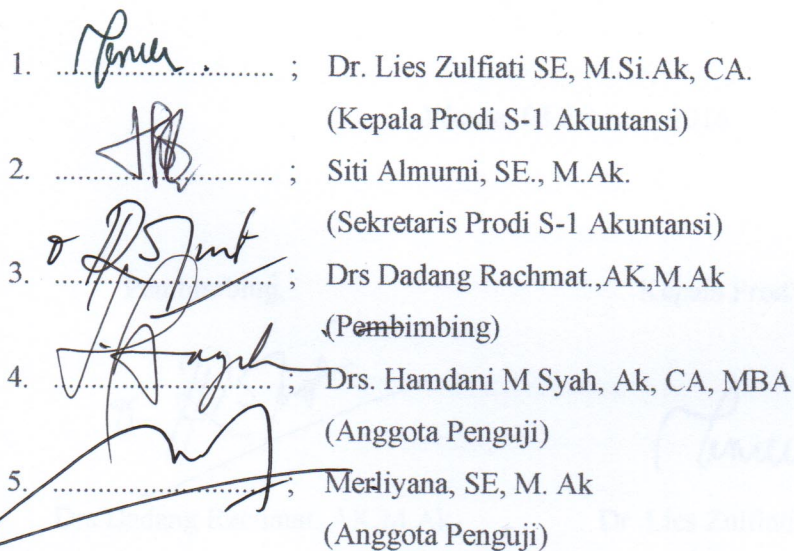 1. ........................... ; Dr. Lies Zulfiati SE, M.Si.Ak, CA.
(Kepala Prodi S-1 Akuntansi)
2. ........................... ; Siti Almurni, SE., M.Ak.
(Sekretaris Prodi S-1 Akuntansi)
3. ........................... ; Drs Dadang Rachmat.,AK,M.Ak
(Pembimbing)
4. ........................... ; Drs. Hamdani M Syah, Ak, CA, MBA
(Anggota Penguji)
5. ........................... ; Merliyana, SE, M. Ak
(Anggota Penguji)